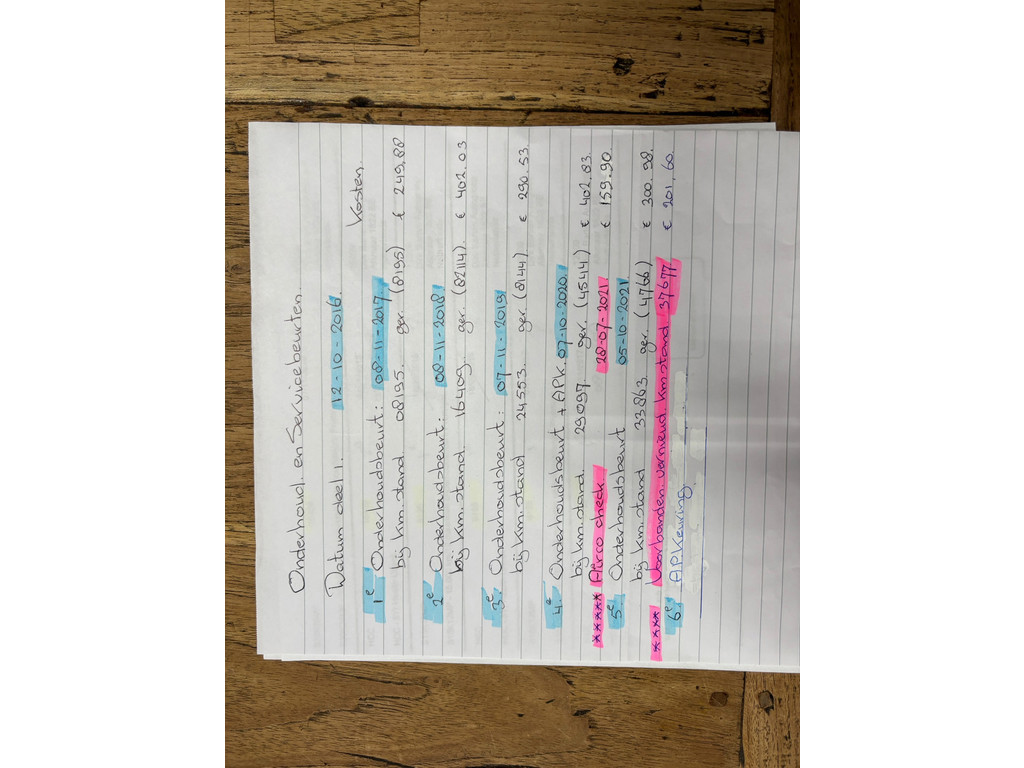 Onderhoud en Servicebeurten.
Datum deel 1. 12-10-2016. Kosten.
1e Onderhoudsbeurt: 08-11-2017.
bij km.stand 08195. ger. (8195) € 249,88
2e Onderhoudsbeurt: 08-11-2018
bij km.stand. 16409. ger. (82114). € 402.03
3e Onderhoudsbeurt: 07-11-2019
bij km.stand 24553. ger. (8144) € 290.53
4e Onderhoudsbeurt + APK. 07-10-2020.
bij km.stand. 29097 ger. (4544) € 402.83.
***** Airco check 28-07-2021 € 159.90.
5e Onderhoudsbeurt 05-10-2021
bij km.stand 33863 ger. (4766) € 300,98.
**** Voorbanden vernieuwd. km.stand 37677
6e APKeuring. € 201,60.